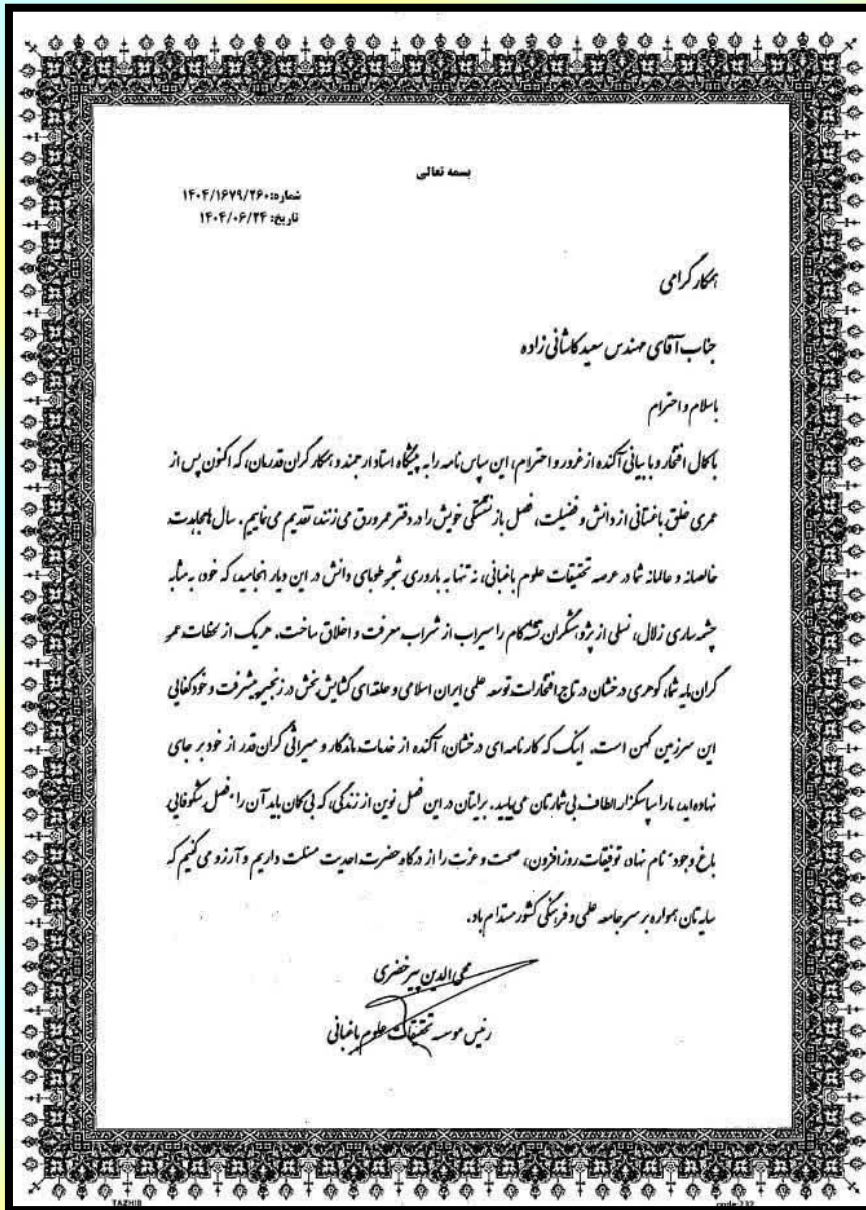 بسمه تعالی
شماره: ۱۴۰۴/۱۶۷۹/۲۶۰
تاریخ: ۱۴۰۴/۰۶/۲۴
همکار گرامی
جناب آقای مهندس سعید کاشانی زاده
باسلام و احترام
با کمال افتخار و با بیانی آکنده از غرور و احترام، این سپاس نامه را به پیشگاه استاد ارجمند و همکار گران قدرمان، که اکنون پس از
عمری خلق باغستانی از دانش و فضیلت، فصل بازنشستگی خویش را در دفتر عمر ورق می زنند، تقدیم می نماییم. سال ها مجاهدت
خالصانه و عالمانه شما در عرصه تحقیقات علوم باغبانی، نه تنها به باروری شجر طوبای دانش در این دیار انجامید، که خود، به مثابه
چشمه ساری زلال، نسلی از پژوهشگران تشنه کام را سیراب از شراب معرفت و اخلاق ساخت. هر یک از لحظات عمر
گران مایه شما، گوهری درخشان در تاج افتخارات توسعه علمی ایران اسلامی و حلقه ای گشایش بخش در زنجیر پیشرفت و خودکفایی
این سرزمین کهن است. اینک که کارنامه ای درخشان، آکنده از خدمات ماندگار و میراثی گران قدر از خود بر جای
نهاده اید، ما را سپاسگزار الطاف بی شمارتان می یابید. برایتان در این فصل نوین از زندگی، که بی گمان باید آن را "فصل شکوفایی
باغ وجود" نام نهاد، توفیقات روزافزون، صحت و عزت را از درگاه حضرت احدیت مسئلت داریم و آرزو می کنیم که
سایه تان همواره بر سر جامعه علمی و فرهنگی کشور مستدام باد.
محی الدین پیرخضری
رئیس موسسه تحقیقات علوم باغبانی
TAZHIB
code:232